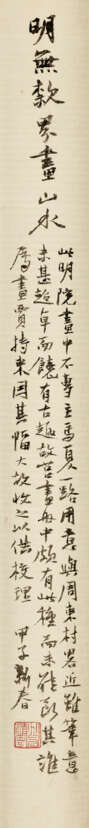 明無款界畫山水
此明院畫中不專主馬夏一路用意與周東村畧近雖筆意
未甚超卓而饒有古趣故吾畫舟中頗有此種而未能斷其誰
屬畫賈持來因其幅大故收之以供梳理
甲子新春